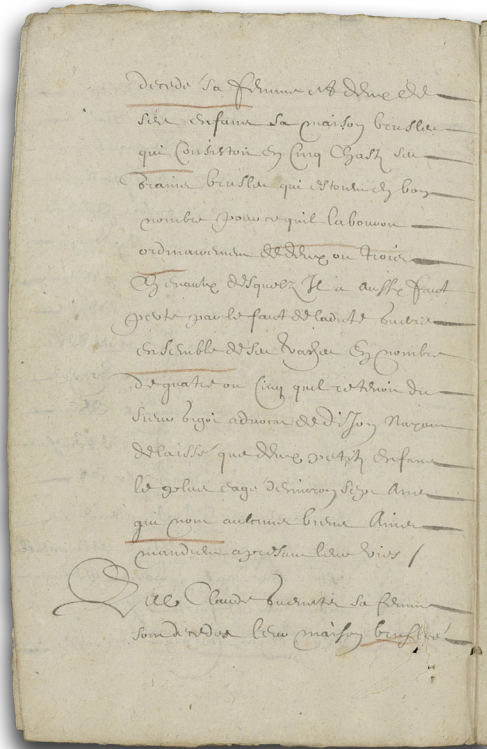 decedé sa femme et deux de
ses enfans sa maison bruslee
qui Consistoit en Cinq Chastz ses
grains bruslez qui estoient en bon
nombre pour ce quil labouroit
ordinairement de deux ou trois
Chevaux desquelz Il a aussy faut
perte par le faut de ladite guerre
ensemble de ses vaches En nombre
de quatre ou Cinq quil retenoit du
sieur bigot advocat de diJon Nayant
delaissé que deux petitz enfans
le plus eagé denviron seize ans
qui nont aulcuns biens Ains
mandient a present leurs vies /
Claude sa femme
sont decedez leur maison bruslee